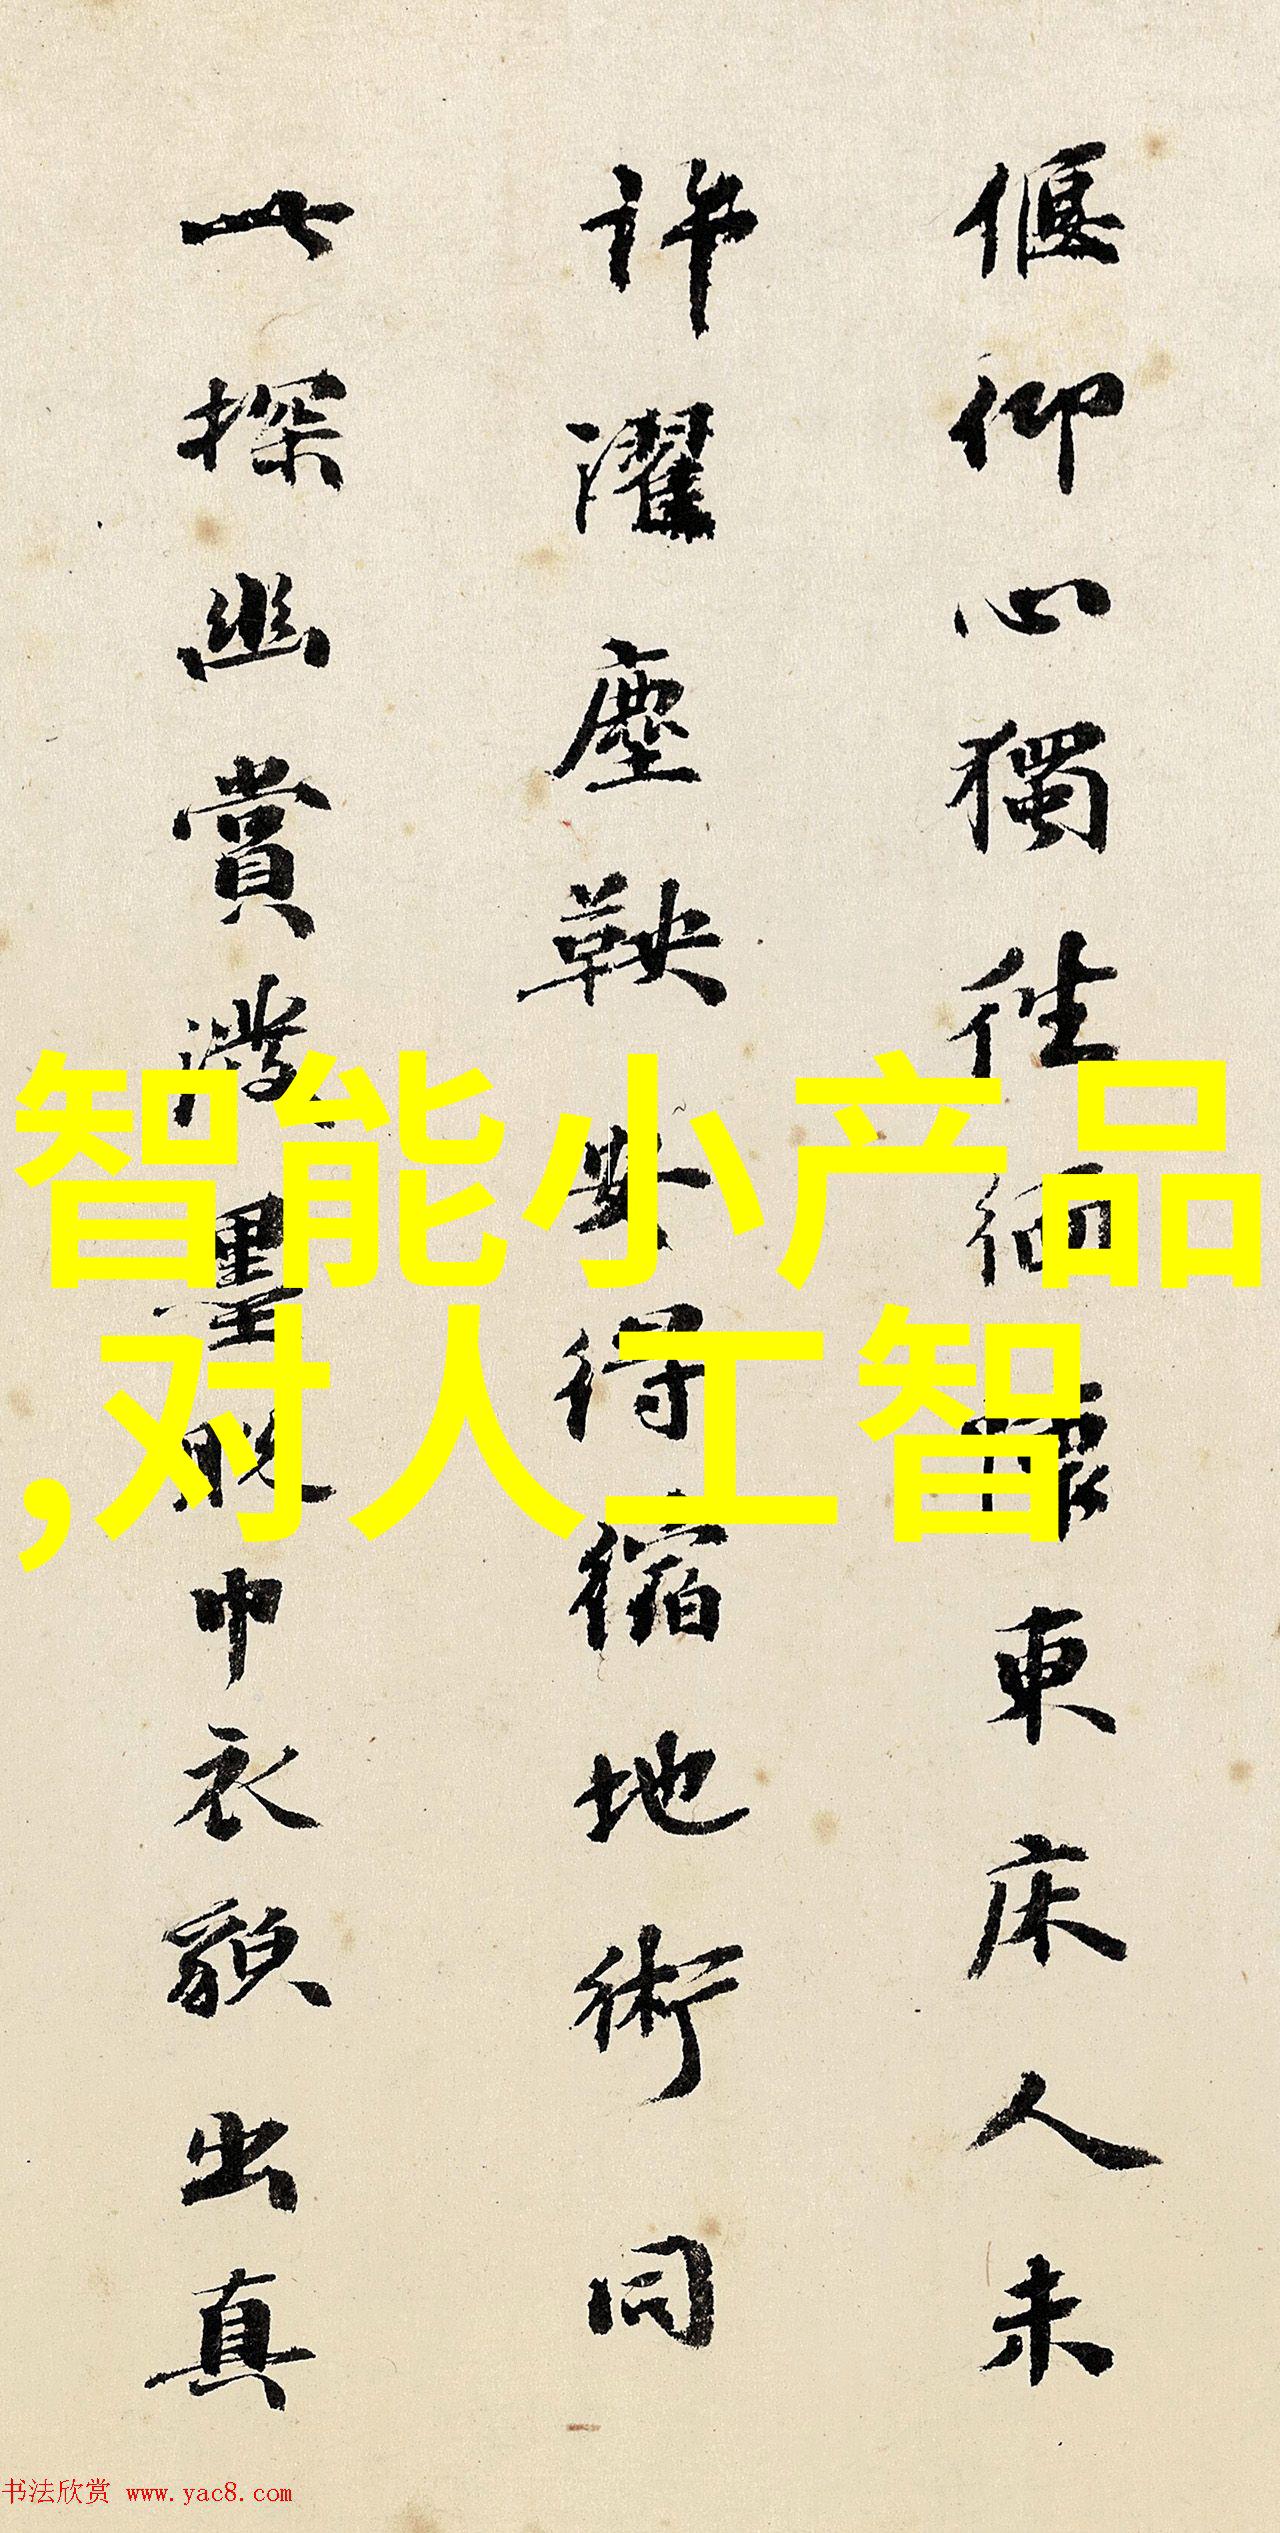 偃仰心獨往緬懷東床人未
許濯塵鞅安得縮地術同
此探幽賞潑墨脫巾衣貌出真
智能小产品
,对人工智
书法欣赏 www.yac8.com